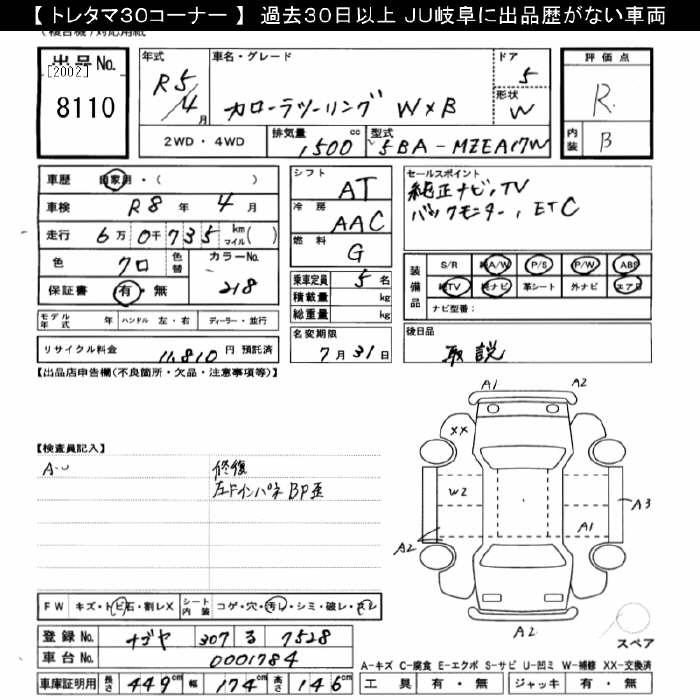 【 トレタマ30コーナー 】 過去30日以上 JU岐阜に出品歴がない車両
出品No.
[2002]
8110
年式 R5/4月
車名・グレード
カローラツーリング W×B
ドア 5
形状 W
評価点
R
内装 B
2WD・4WD
排気量 1500 cc
型式 5BA-MZEA17W
車歴 自家用・( )
車検 R8 年 4 月
走行 6万0千735 km マイル( )
色 クロ 色替
カラーNo. 218
保証書 有・無
モデル年式 年 ハンドル 左・右 ディーラー・並行
リサイクル料金 11,810 円 預託済
シフト AT
冷房 AAC
燃料 G
乗車定員 5 名
積載量 kg
総重量 kg
名変期限
7月31日
セールスポイント
純正ナビ,TV
バックモニター,ETC
装備品
S/R 純A/W P/S P/W ABS
純TV 純ナビ 革シート 外ナビ エアB
ナビ型番:
後日品
取説
【出品店申告欄(不良箇所・欠品・注意事項等)】
【検査員記入】
A-U
修復
左Fインパネ BP歪
A1 A2
XX
W2
A3
A1
A2
A2
スペア
FW キズ・トビ石・割レX
シート内装 コゲ・穴・汚レ・シミ・破レ・スレ
登録No. ナゴヤ 307 る 7528
車台No. 0001784
車庫証明用 長さ 449cm 幅 174cm 高さ 146cm
A-キズ C-腐食 E-エクボ S-サビ U-凹ミ W-補修 XX-交換済
工具 有・無 ジャッキ 有・無